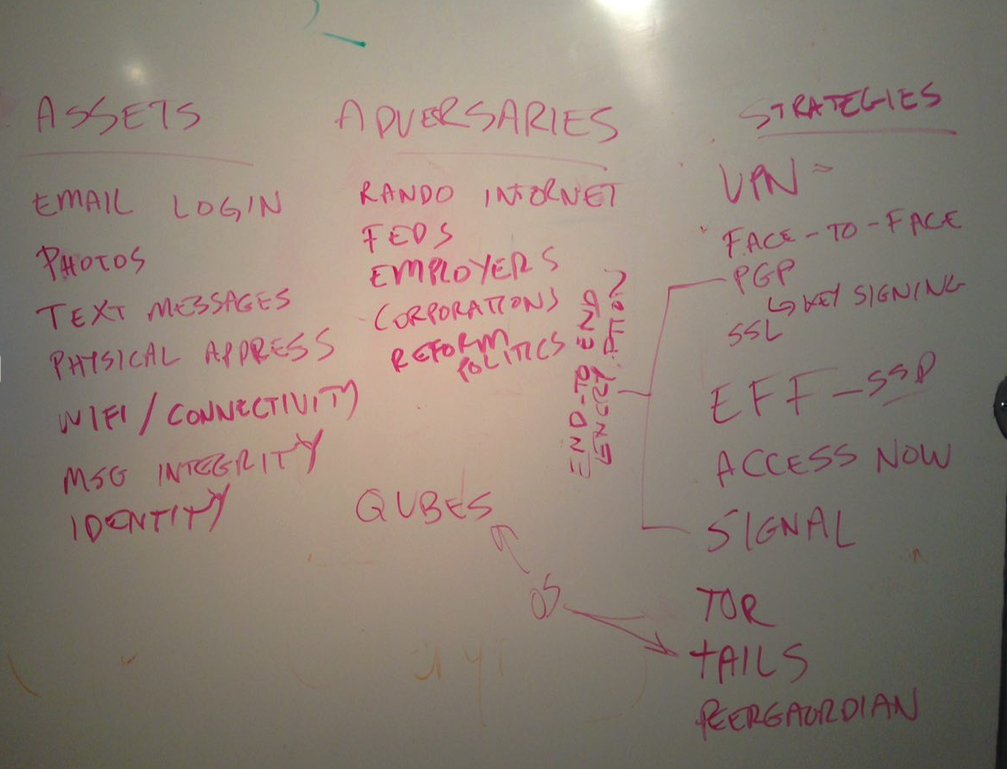 ASSETS
EMAIL LOGIN
PHOTOS
TEXT MESSAGES
PHYSICAL ADDRESS
WIFI/CONNECTIVITY
MSG INTEGRITY
IDENTITY
ADVERSARIES
RANDO INTERNET
FEDS
EMPLOYERS
CORPORATIONS
REFORM
POLITICS
QUBES
OS
END-TO END
ENCRYPTION
STRATEGIES
VPN
FACE-TO-FACE
PGP
↳ KEY SIGNING
SSL
EFF-SSD
ACCESS NOW
SIGNAL
TOR
TAILS
PEERGAORDIAN